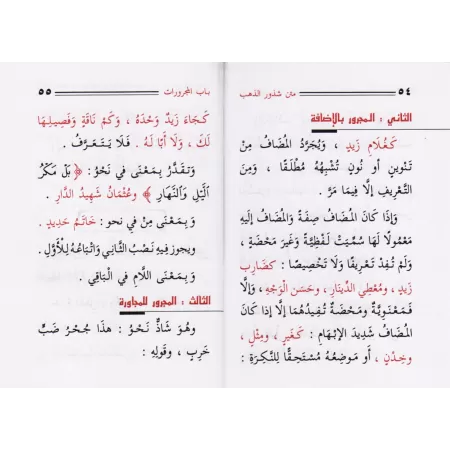 ٥٤ متن شذور الذهب
الثاني : المجرور بالإضافة
كَغُلَامِ زَيدٍ ، وَيُجَرَّدُ المُضَافُ مِنْ
تَنْوِينٍ أو نُونٍ تُشْبِهُهُ مُطْلَقًا ، وَمِنَ
التَّعْرِيفِ إلَّا فِيمَا مَرَّ .
وَإذَا كَانَ المُضَافُ صِفَةً وَالمُضَافُ إلَيهِ
مَعْمُولًا لَهَا سُمِّيَتْ لَفْظِيَّةً وَغَيرَ مَحْضَةٍ ،
وَلَمْ تُفِدْ تَعْرِيفًا وَلَا تَخْصِيصًا : كضَارِبِ
زَيدٍ ، وَمُعْطِي الدِّينَارِ ، وَحَسَنِ الْوَجْهِ ، وَإلَّا
فَمَعْنَوِيَّةٌ وَمَحْضَةٌ تُفِيدُهُمَا إلَّا إذَا كَانَ
المُضَافُ شَدِيدَ الإبْهَامِ : كَغَيرٍ ، وَمِثْلٍ ،
وخِدْنٍ ، أَو مَوضِعُهُ مُسْتَحِقًّا لِلنَّكِرَةِ :
باب المجرورات ٥٥
كَجَاءَ زَيدٌ وَحْدَهُ ، وَكَمْ نَاقَةٍ وَفَصِيلِهَا
لَكَ ، وَلَا أَبَا لَهُ . فَلَا يَتَعَرَّفُ .
وَتَقَدَّرُ بِمَعْنَى فِي نَحْوُ : ﴿ بَلْ مَكْرُ
الَّيْلِ وَالنَّهَارِ ﴾ وعُثْمَانُ شَهِيدُ الدَّارِ .
وَ بِمَعْنَى مِنْ في نحو : خَاتَمُ حَدِيدٍ .
ويجوز فِيهِ نَصْبُ الثَّانِي وَاتْبَاعُهُ لِلْأَوَّلِ .
وَ بِمَعْنَى اللَّامِ فِي الْبَاقِي .
الثالث : المجرور للمجاورة
وهُوَ شَاذٌّ نَحْوُ : هذَا جُحْرُ ضَبٍّ
خَرِبٍ ، وَقَولِهِ :